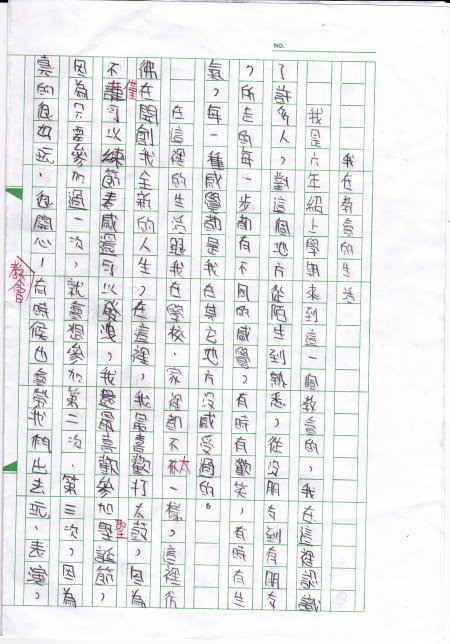 NO.
我在教會的生活
我是六年紹上學期來到這一個教會的，我在這裡認識
了許多人，對這個地方從陌生到熟悉，從沒朋友到有朋友
，所走的每一步都有不同的感覺，有時有歡笑，有時有生
氣，每一種感覺都是我在其它地方沒感受過的。
在這裡的生活跟我在學校、家裡都不太一樣，這裡彷
彿在開創我全新的人生，在這裡，我最喜歡打太鼓，因為
不僅可以練節奏感還可以發洩，我還最喜歡參加聖誕節，
因為只要參加過一次，就會想參加第二次、第三次，因為
真的很好玩、很開心！有時候教會也會帶我們出去玩、表演，